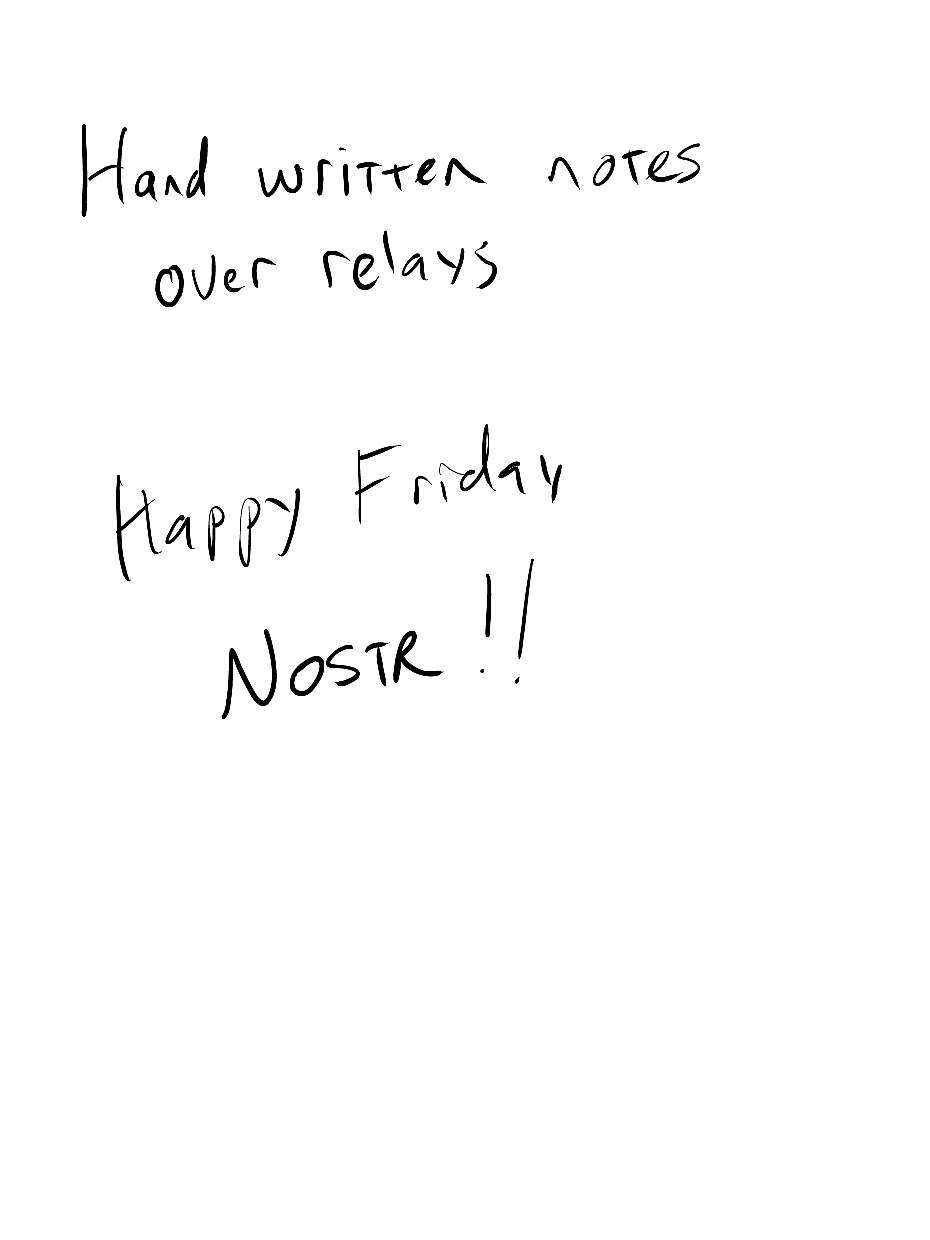 Hand written notes
over relays
Happy Friday
NOSTR!!